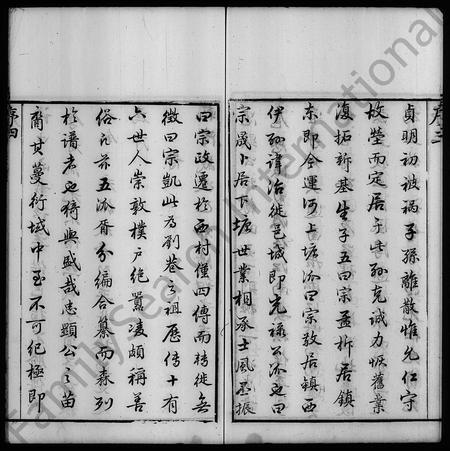 序三
貞明初被禍子孫離散惟允仁守
故塋而定居于此孫克誠力恢舊業
復拓新基生子五曰宗益析居鎮
東即今運河上塘派曰宗敦居鎮西
伊孫諱冶徙邑城即光祿公派也曰
宗晟卜居下塘世業相承士風丕振
曰宗政遷于西村僅四傳而轉徙無
徵曰宗凱此為劉巷之祖歷傳十有
六世人崇敦樸戶絕囂凌頗稱善
俗凡茲五派胥分編合纂而森列
於譜者也猗與盛哉忠顯公之苗
裔其蔓衍域中至不可紀極即
序四
FamilySearch International